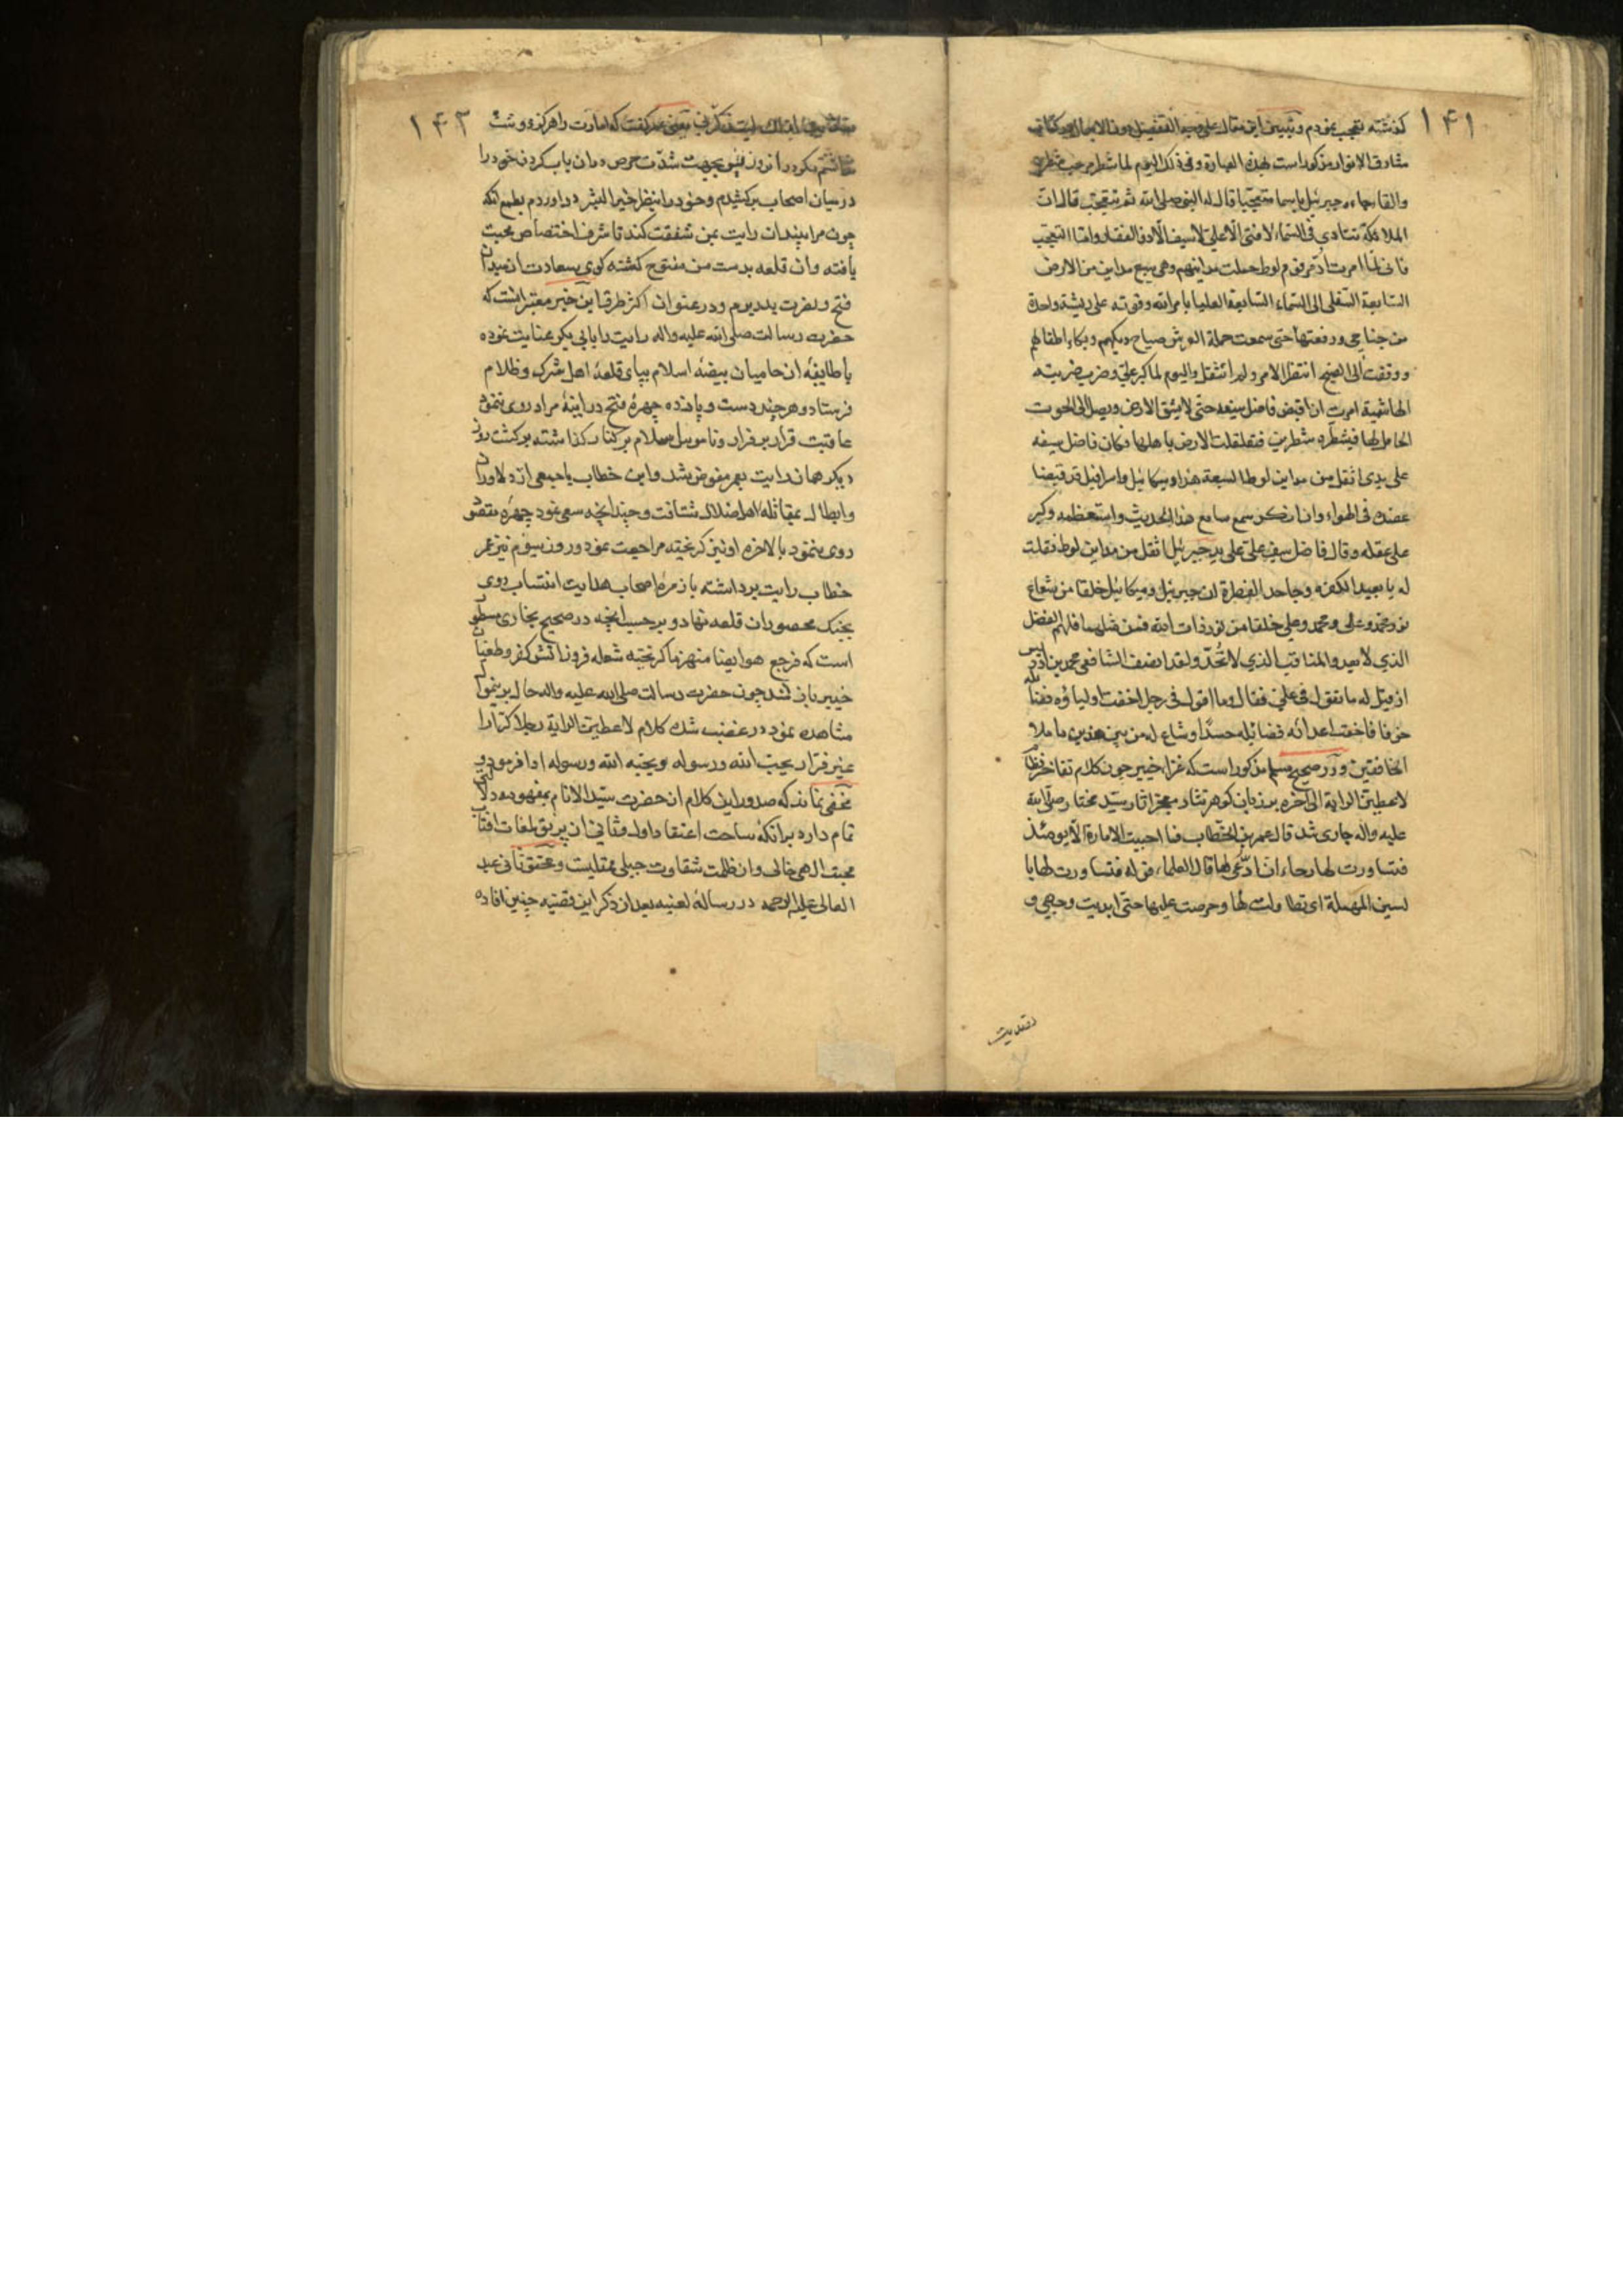 ۱۴۱
كذشته تعجب نمودم و تبيين اين مقال على وجه التفصيل دون الاجمال در كتاب
مشارق الانوار مذكور است بهذه العبارة وفى ذلك اليوم لما شطر مرحب شطرين
والقاه جاء جبرئيل باسما متعجبا قال له النبى صلى الله ثم تتعجب قال ان
الملائكة تنادى فى السماء لا فتى الا على لا سيف الا ذو الفقار واما التعجب
فانى لما امرت ادمر قوم لوط حملت مداينهم وهى سبع مداين من الارض
السابعة السفلى الى السماء السابعة العليا بامر الله وقوته على ريشة واحدة
من جناحى ورفعتها حتى سمعت حملة العرش صياح ديكهم وبكاء اطفالهم
ووقفت الى الصبح انتظر الامر ولم اتثقل واليوم لما كبر على وضرب ضربته
الهاشمية امرت ان اقبض فاضل سيفه حتى لا يشق الارض ويصل الى الحوت
الحامل لها فيشطره شطرين فتقلقلت الارض باهلها فكان فاضل سيفه
على يدى اثقل من مداين لوط السبعة هذا وميكائيل واسرافيل قد قبضا
عضده فى الهواء وان انكر سمع سامع هذا الحديث واستعظمه وكبر
على عقله وقال فاضل سيف على على يد جبرئيل اثقل من مداين لوط فقلت
له يا بعيد الفكرة وجاحد الفطرة ان جبرئيل وميكائيل خلقا من شعاع
نور محمد وعلى ومحمد وعلى خلقا من نور ذات الله فمن مثلهما فلهم الفضل
الذى لا يعد والمناقب الذى لا تحد ولقد انصف الشافعى محمد بن ادريس
اذ قيل له ما تقول فى على فقال وما اقول فى رجل اخفت اولياؤه فضائله
خوفا فاخفت اعدائه فضائله حسدا وشاع له من بين هذين ما ملا
الخافقين و در صحيح مسلم مذكور است كه غزاء خيبر چون كلام تفاخر
لاعطين الراية الى آخره بر زبان كوهر نثار معجز اثار سيد مختار صلى الله
عليه واله جارى شد قال عمر بن الخطاب فما احببت الامارة الا يومئذ
فتساورت لها رجاء ان ادعى لها قال العلماء قوله فتساورت لها با
لسين المهملة اى تطاولت لها وحرصت عليها حتى ابديت وجهى و
تصديت
۱۴۳
يعنى عمر كفت كه امارت را هركز دوست
مكر در ان روز بجهت شدت حرص دران باب كردن خود را
در ميان اصحاب بركشيدم وخود را بنظر خير البشر در اوردم بطمع انكه
چون مرا بيند ان رايت بمن شفقت كند تا شرف اختصاص محبت
يافته وان قلعه بدست من مفتوح كشته كوى سعادت از ميدان
فتح ونصرت بدر برم ودر عنوان اكثر طرق اين خبر معتبر انست كه
حضرت رسالت صلى الله عليه واله رايت را بابى بكر عنايت نموده
با طايفه از حاميان بيضه اسلام بپاى قلعه اهل شرك وظلام
فرستاد وهر چند دست و پا زده چهره فتح در اينه مراد روى ننمود
عاقبت قرار بر فرار و ناموس اسلام بر كنار كذاشته بركشت روز
ديكر همان رايت بعمر مفوض شد وابن خطاب با جمعى از دلاوران
وابطال بمقاتله اهل ضلال شتافت وچندانچه سعى نمود چهره مقصود
روى ننمود بالاخره او نيز كريخته مراجعت نمود روز سيوم نيز عمر
خطاب رايت برداشته با زمره اصحاب هدايت انتساب روى
بجنك محصوران قلعه نهاد و بر حسب انچه در صحيح بخارى مسطور
است كه فرجع هو ايضا منهزما كريخته شعله فروز اتش كفر وطغيان
خيبر باز شد چون حضرت رسالت صلى الله عليه واله حال بر ينمنوال
مشاهده نمود در غضب شده كلام لاعطين الراية رجلا كرارا
غير فرار يحب الله ورسوله ويحبه الله ورسوله ادا فرمود و
مخفى نماند كه صدور اين كلام از حضرت سيد الانام بمفهومه دلالتى
تمام دارد بر انكه ساحت اعتقاد اول و ثانى از بريق لمعات افتاب
محبت الهى خالى واز ظلمت شقاوت جبلى ممتليست و محقق ثانى عبد
العالى عليه الرحمه در رساله لعنيه بعد از ذكر اين قضيه چنين افاده